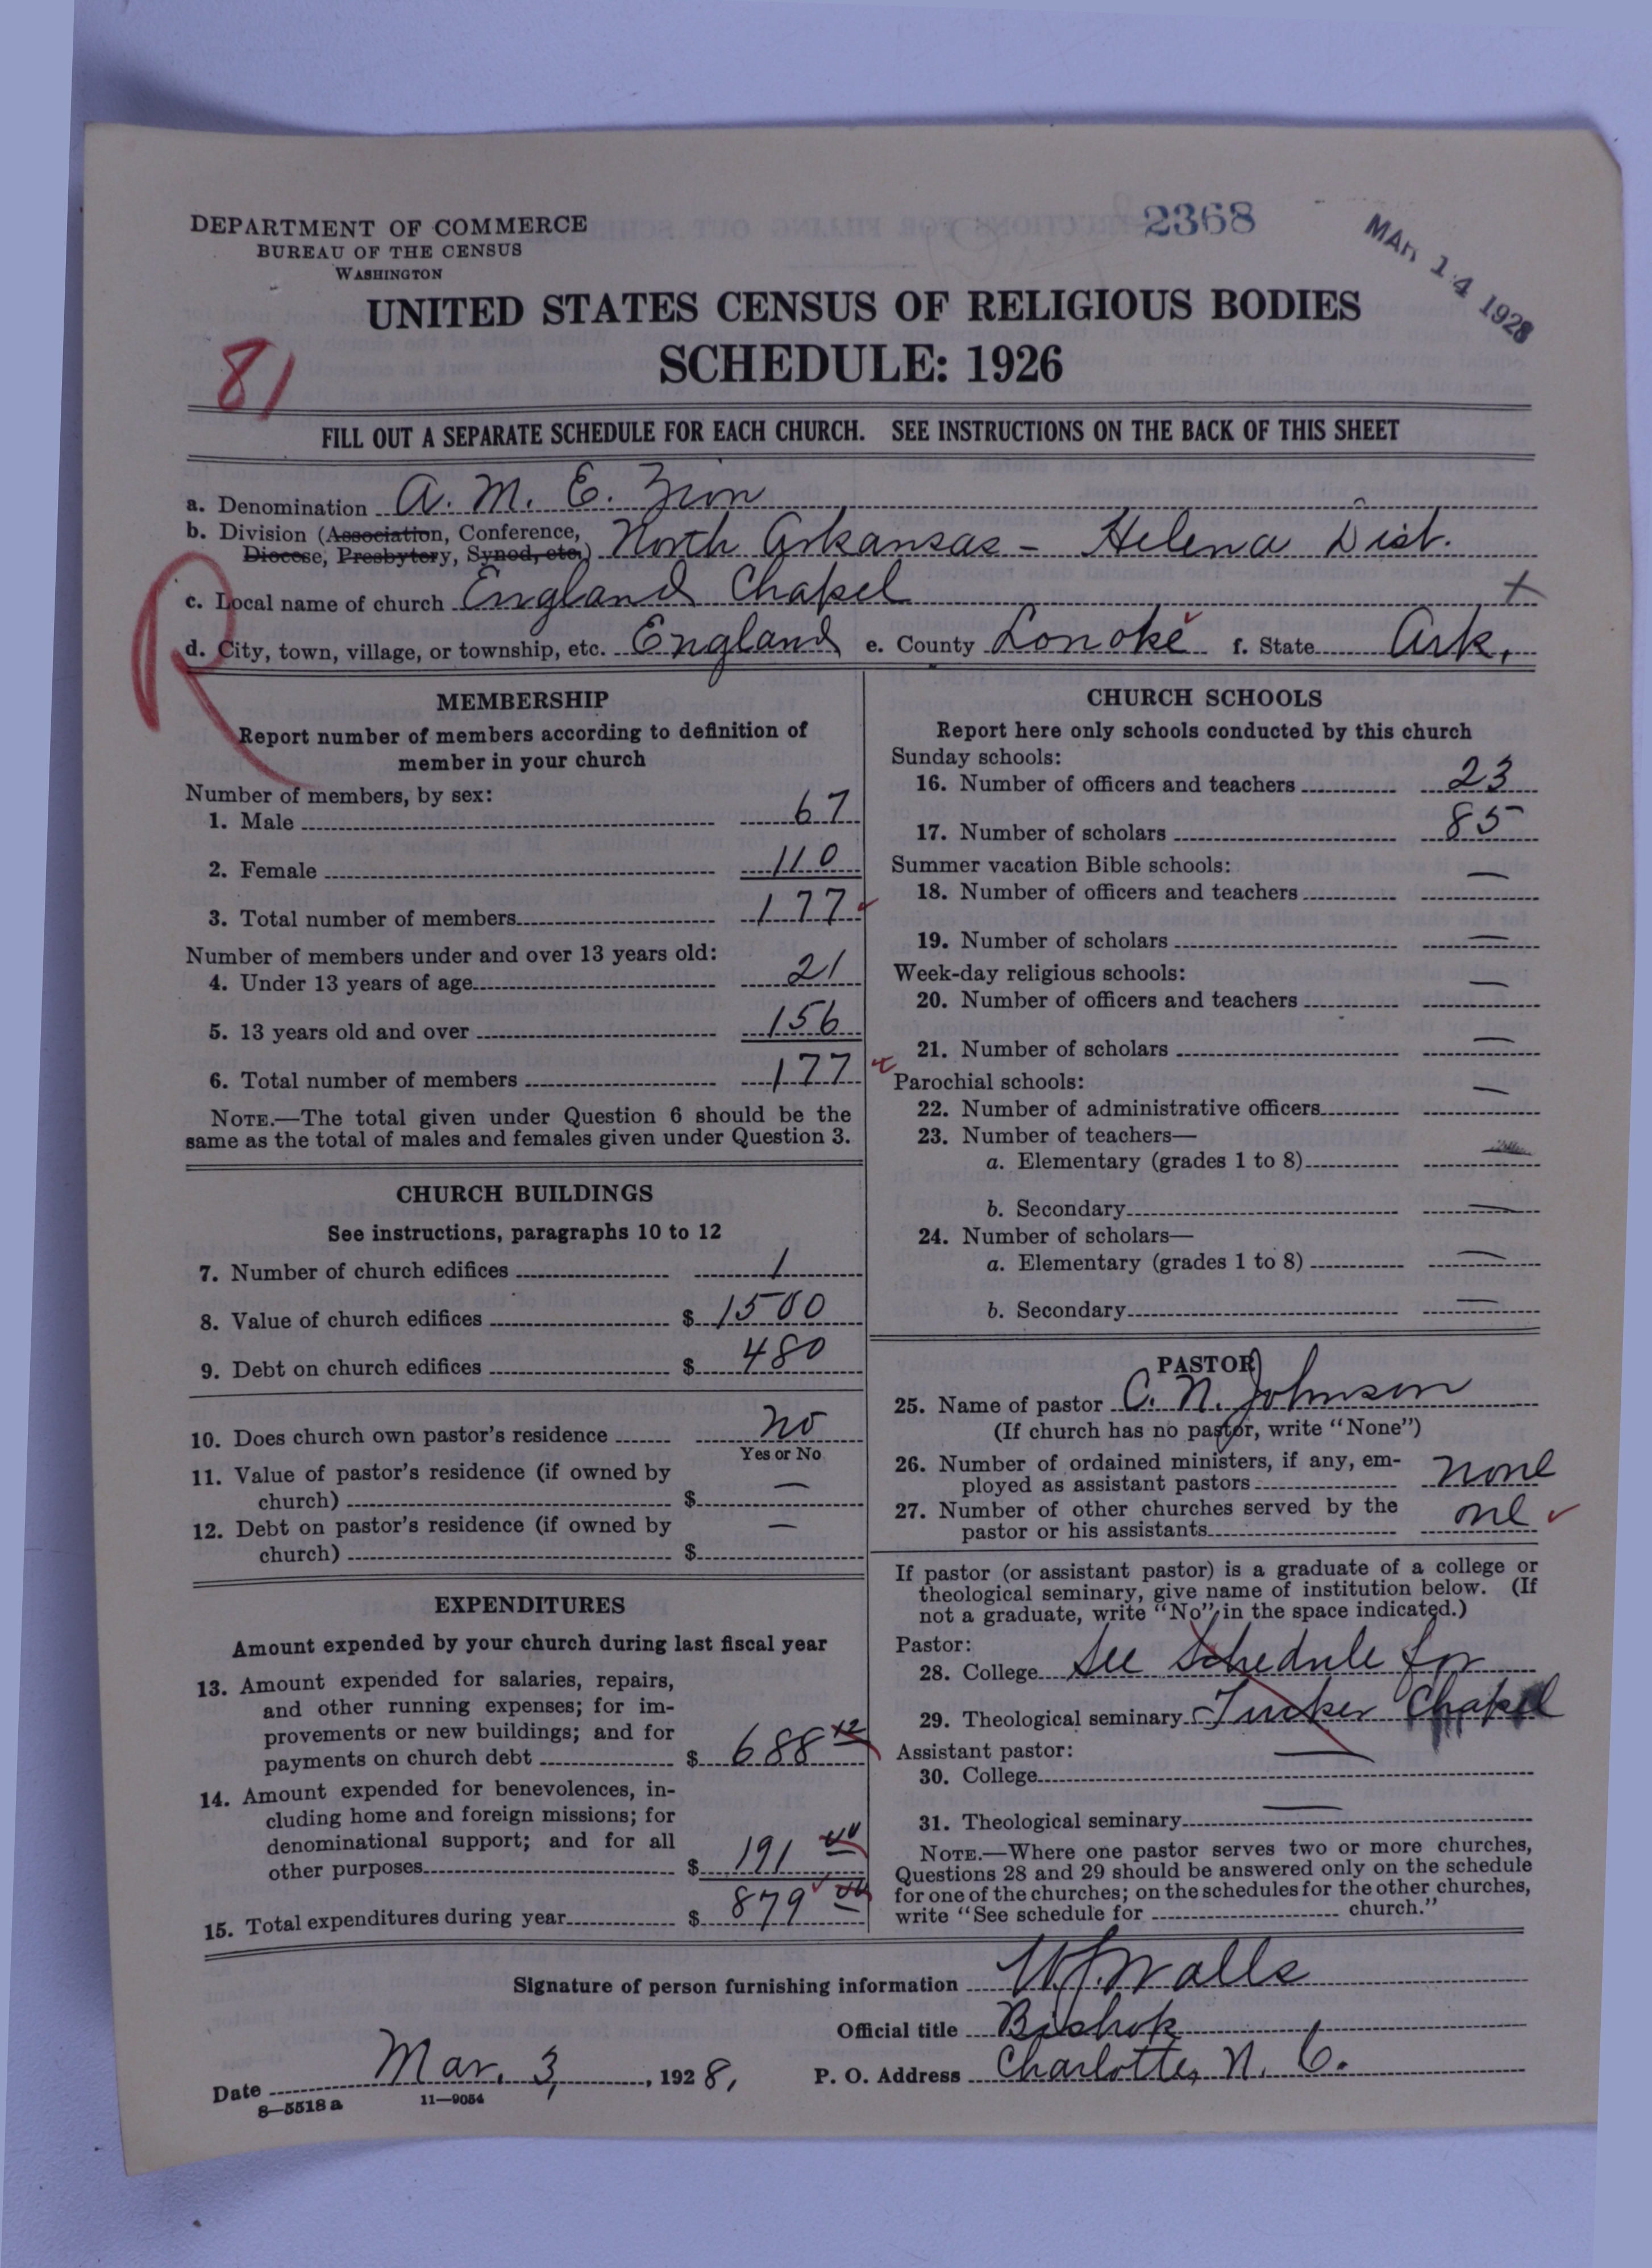 DEPARTMENT OF COMMERCE
BUREAU OF THE CENSUS
WASHINGTON
2368
MAR 14 1928
UNITED STATES CENSUS OF RELIGIOUS BODIES
SCHEDULE: 1926
81
FILL OUT A SEPARATE SCHEDULE FOR EACH CHURCH. SEE INSTRUCTIONS ON THE BACK OF THIS SHEET
a. Denomination A. M. E. Zion
b. Division (Association, Conference,
Diocese, Presbytery, Synod, etc.) North Arkansas - Helena Dist.
c. Local name of church England Chapel
R
d. City, town, village, or township, etc. England e. County Lonoke f. State Ark.
MEMBERSHIP
Report number of members according to definition of
member in your church
Number of members, by sex:
1. Male 67
2. Female 110
3. Total number of members 177
Number of members under and over 13 years old:
4. Under 13 years of age 21
5. 13 years old and over 156
6. Total number of members 177
NOTE.—The total given under Question 6 should be the
same as the total of males and females given under Question 3.
CHURCH BUILDINGS
See instructions, paragraphs 10 to 12
7. Number of church edifices 1
8. Value of church edifices $ 1500
9. Debt on church edifices $ 480
10. Does church own pastor's residence no
Yes or No
11. Value of pastor's residence (if owned by
church) $ —
12. Debt on pastor's residence (if owned by
church) $ —
EXPENDITURES
Amount expended by your church during last fiscal year
13. Amount expended for salaries, repairs,
and other running expenses; for im-
provements or new buildings; and for
payments on church debt $ 688
14. Amount expended for benevolences, in-
cluding home and foreign missions; for
denominational support; and for all
other purposes $ 191
15. Total expenditures during year $ 879
CHURCH SCHOOLS
Report here only schools conducted by this church
Sunday schools:
16. Number of officers and teachers 23
17. Number of scholars 85
Summer vacation Bible schools:
18. Number of officers and teachers —
19. Number of scholars —
Week-day religious schools:
20. Number of officers and teachers —
21. Number of scholars —
Parochial schools:
22. Number of administrative officers —
23. Number of teachers—
a. Elementary (grades 1 to 8)
b. Secondary —
24. Number of scholars—
a. Elementary (grades 1 to 8) —
b. Secondary —
PASTOR
25. Name of pastor C. N. Johnson
(If church has no pastor, write "None")
26. Number of ordained ministers, if any, em-
ployed as assistant pastors none
27. Number of other churches served by the
pastor or his assistants one
If pastor (or assistant pastor) is a graduate of a college or
theological seminary, give name of institution below. (If
not a graduate, write "No" in the space indicated.)
Pastor:
28. College See Schedule for
29. Theological seminary Tucker Chapel
Assistant pastor:
30. College —
31. Theological seminary —
NOTE.—Where one pastor serves two or more churches,
Questions 28 and 29 should be answered only on the schedule
for one of the churches; on the schedules for the other churches,
write "See schedule for church."
Signature of person furnishing information W. J. Walls
Official title Bishop
Date Mar. 3, 1928, P. O. Address Charlotte, N. C.
8—5518 a 11—9054